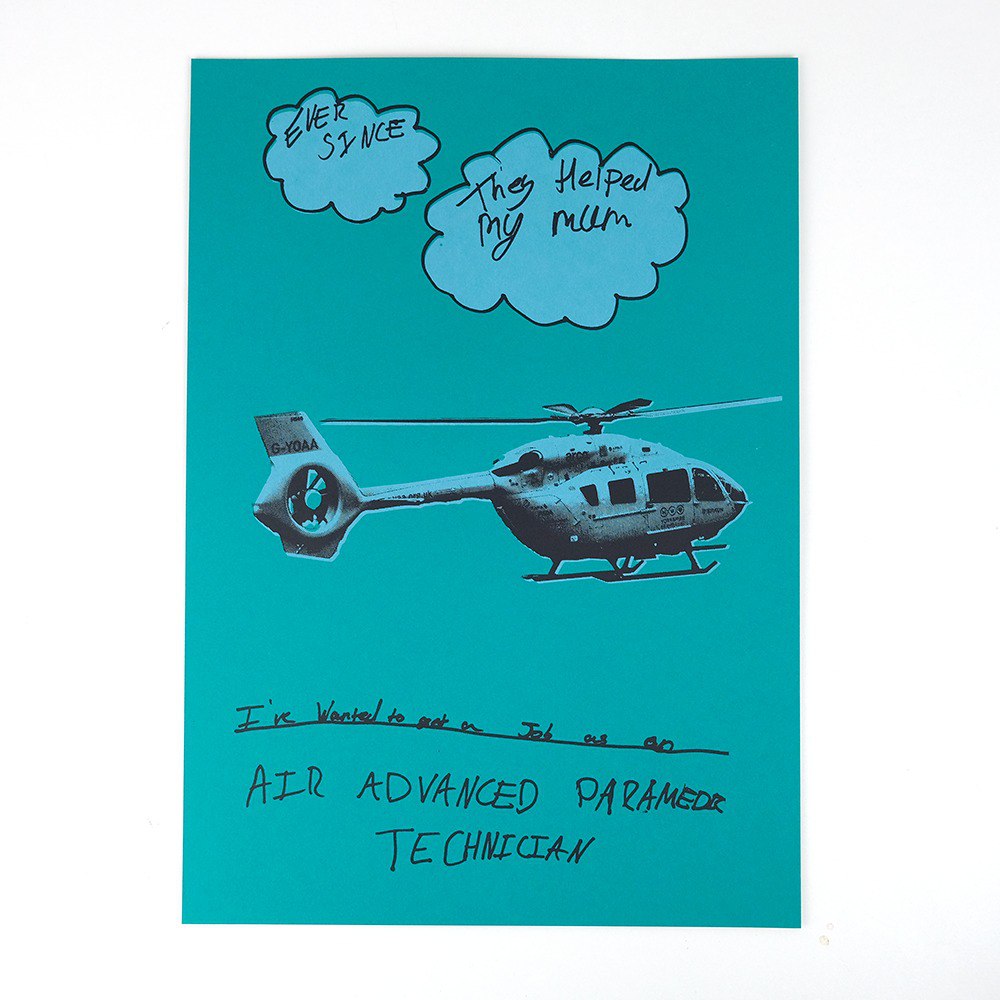 EVER
SINCE
They Helped
my mum
G-YOAA
I've Wanted to get a Job as an
AIR ADVANCED PARAMEDIC
TECHNICIAN